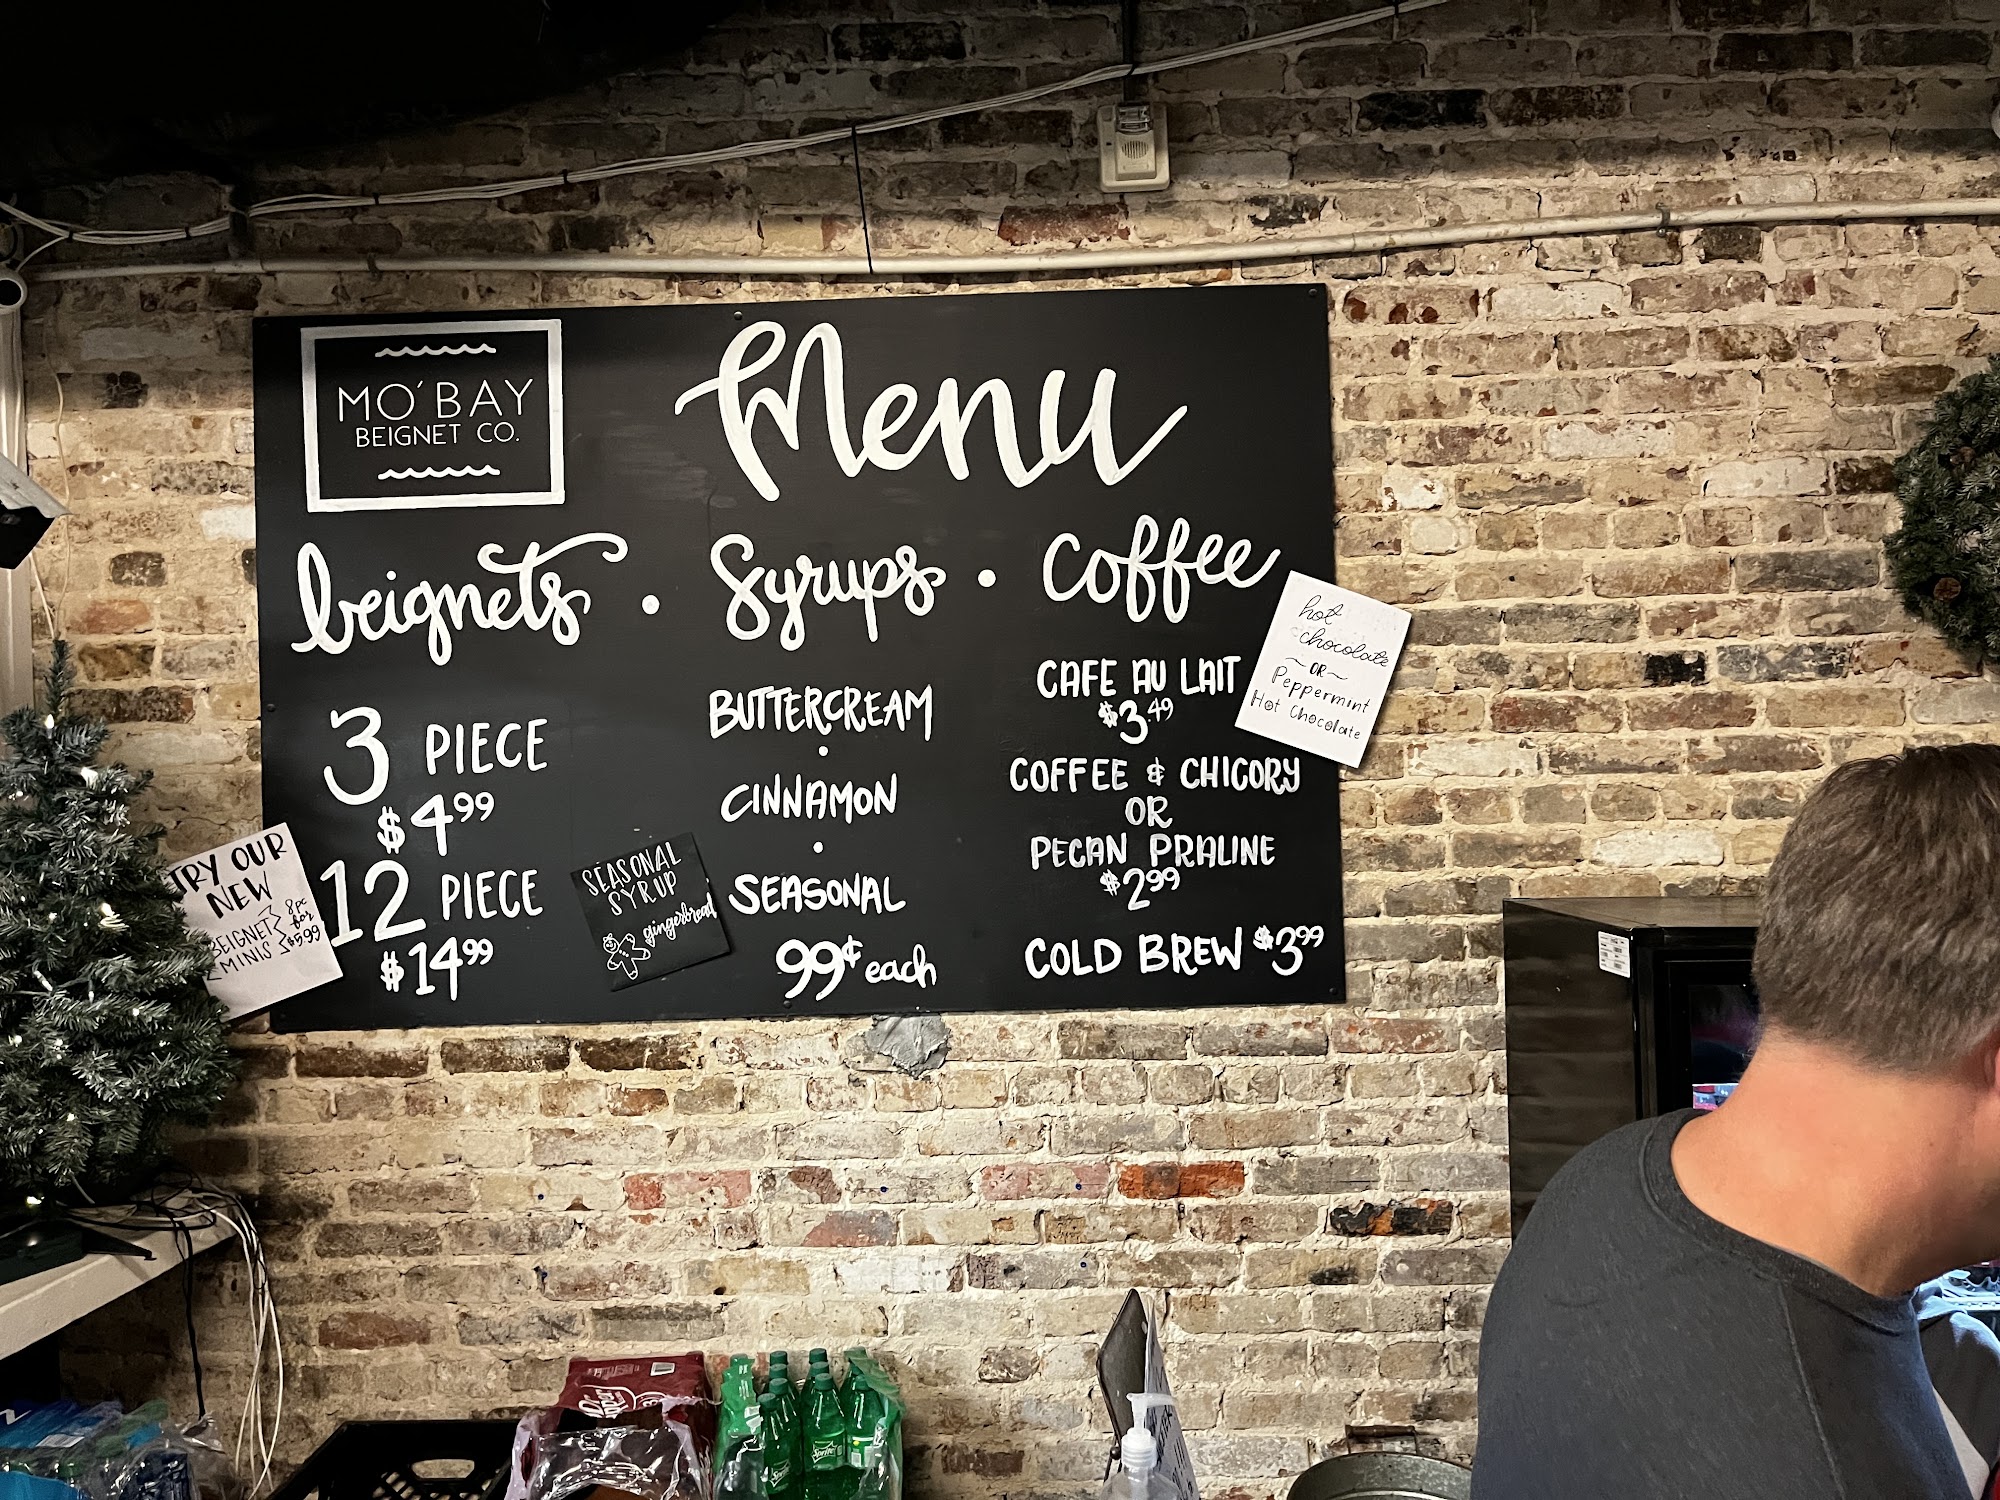 MO'BAY
BEIGNET CO.
Menu
beignets • Syrups • Coffee
3 PIECE
$4.99
12 PIECE
$14.99
TRY OUR
NEW
BEIGNET
MINIS
8pc
for
$5.99
SEASONAL
SYRUP
gingerbread
BUTTERCREAM
•
CINNAMON
•
SEASONAL
99¢ each
CAFE AU LAIT
$3.49
COFFEE & CHICORY
OR
PECAN PRALINE
$2.99
COLD BREW $3.99
hot
chocolate
~ OR ~
Peppermint
Hot Chocolate
Sprite